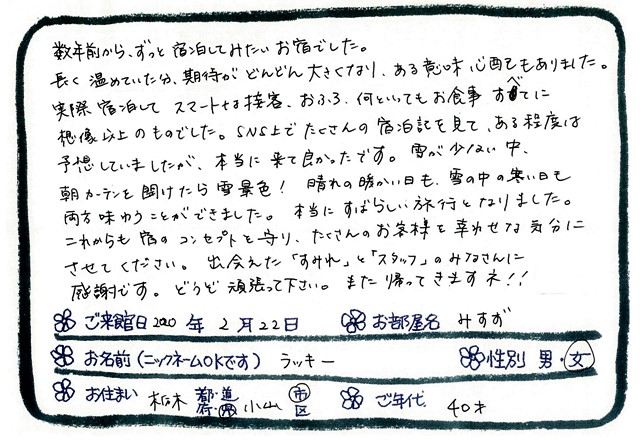 数年前から、ずっと宿泊してみたいお宿でした。
長く温めていた分、期待がどんどん大きくなり、ある意味心配でもありました。
実際宿泊してスマートな接客、おふろ、何といってもお食事すべてに
想像以上のものでした。SNS上でたくさんの宿泊記を見て、ある程度は
予想していましたが、本当に来て良かったです。雪が少ない中、
朝カーテンを開けたら雪景色！晴れの暖かい日も、雪の中の寒い日も
両方味わうことができました。本当にすばらしい旅行となりました。
これからも宿のコンセプトを守り、たくさんのお客様を幸わせな気分に
させてください。出会えた「すみれ」と「スタッフ」のみなさんに
感謝です。どうぞ頑張って下さい。また帰ってきますネ!!
ご来館日 2020 年 2 月 22 日 お部屋名 みすず
お名前(ニックネームOKです) ラッキー 性別 男・女
お住まい 栃木 都・道 府・県 小山 市 区 ご年代 40才